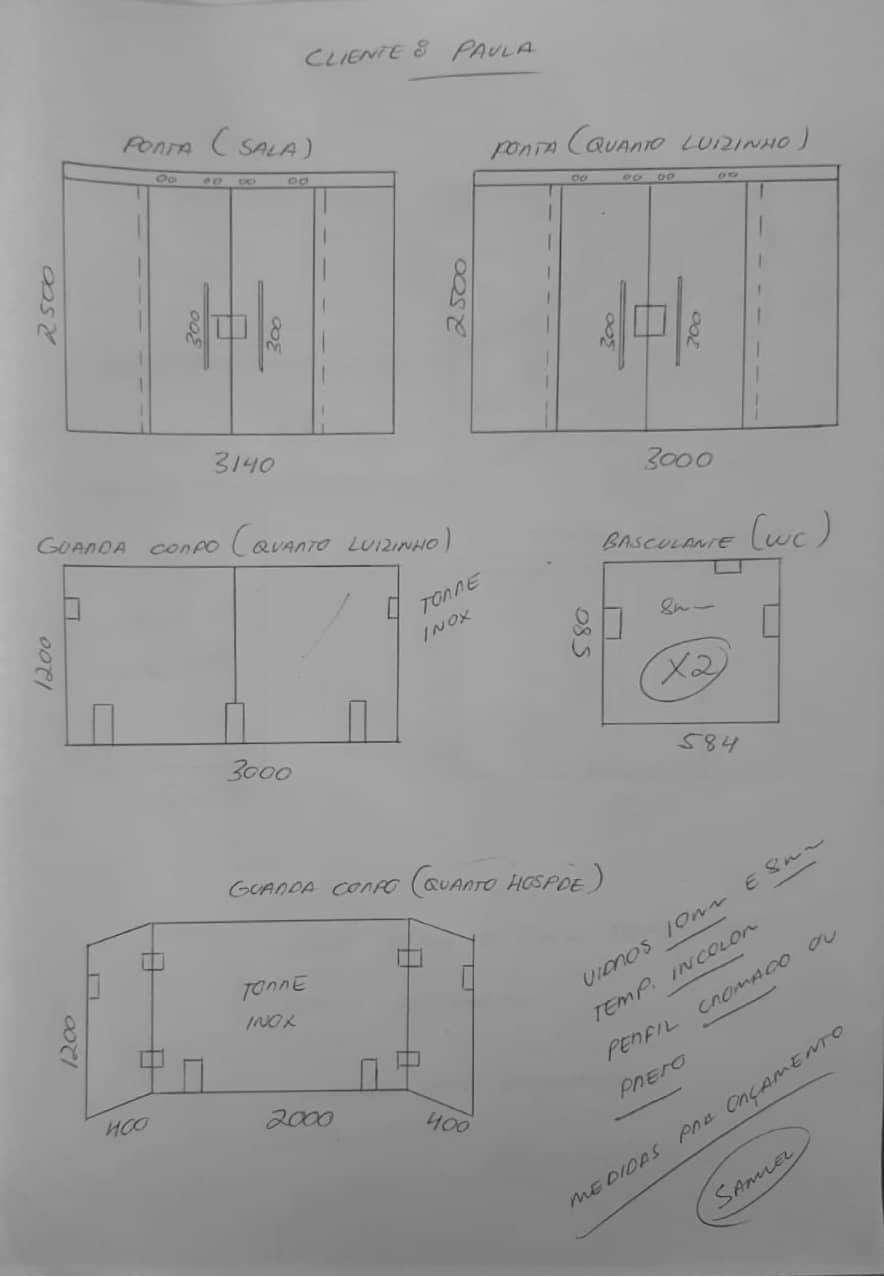 CLIENTE: PAULA
PORTA (SALA)
2500
300
300
3140
PORTA (QUARTO LUIZINHO)
2500
300
300
3000
GUARDA CORPO (QUARTO LUIZINHO)
1200
TORRE
INOX
3000
BASCULANTE (WC)
580
8mm
X2
584
GUARDA CORPO (QUARTO HOSPDE)
1200
TORRE
INOX
400
2000
400
VIDROS 10mm E 8mm
TEMP. INCOLOR
PERFIL CROMADO OU
PRETO
MEDIDAS PRA ORÇAMENTO
SAMUEL